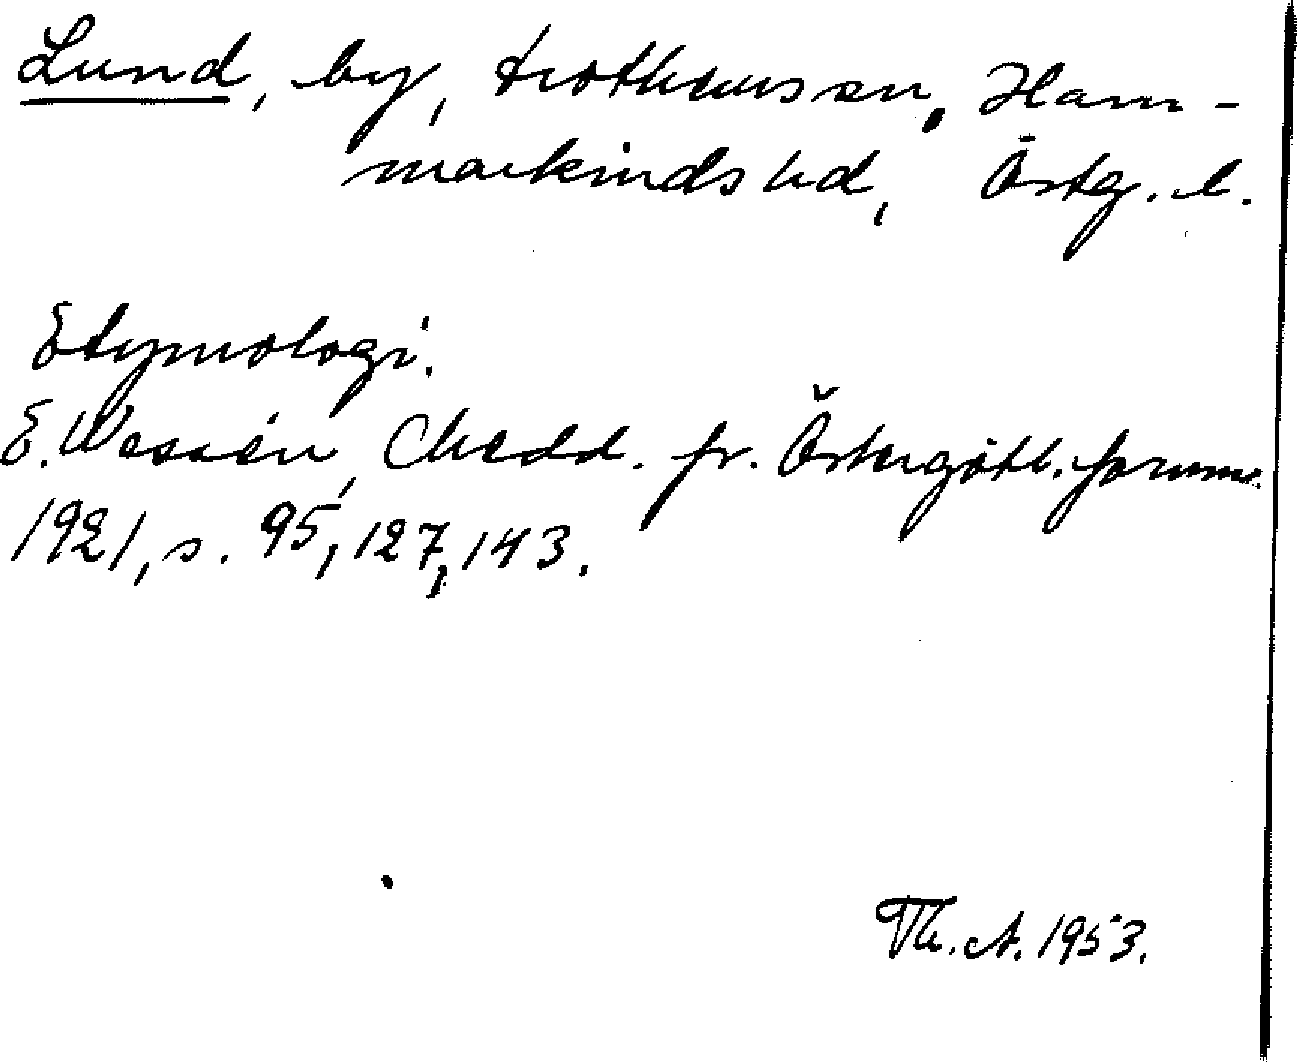 Lund, by, Drothems sn, Ham-
markinds hd, Östg. l.
Etymologi.
E. Wessén, Medd. fr. Östergötl. fornm.
1921, s. 95, 127, 143.
Th. A. 1953.